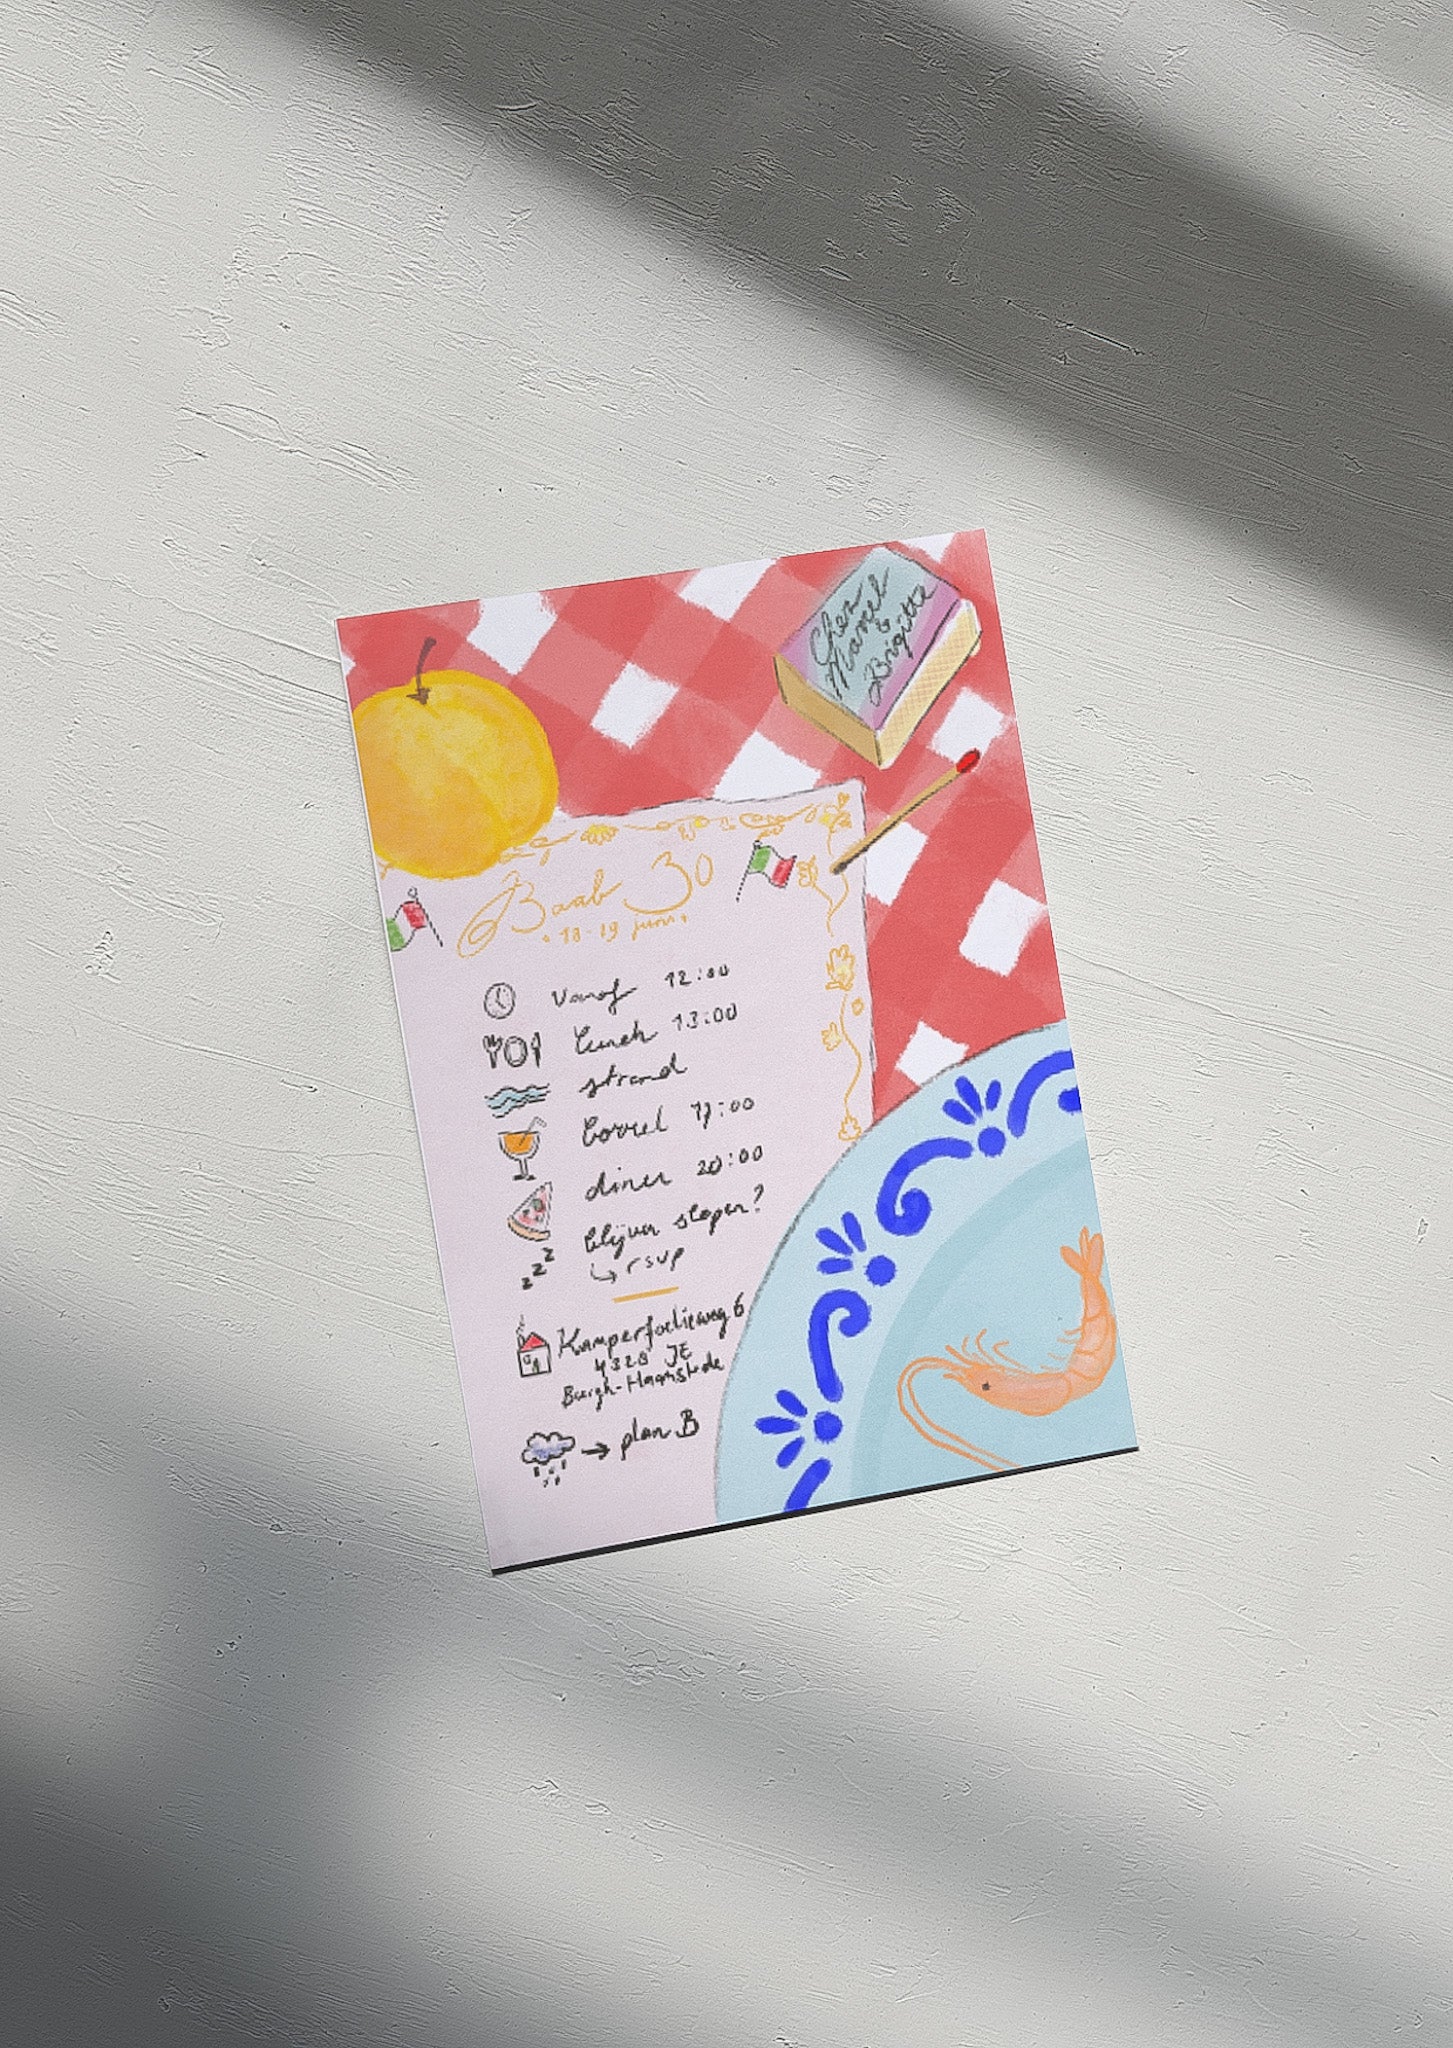 Chez
Marcel
&
Brigitte
Baab 30
18-19 juni
vanaf 12:00
lunch 13:00
strand
borrel 17:00
diner 20:00
blijven slapen?
↳ rsvp
zzz
Kamperfoelieweg 6
4328 JE
Burgh-Haamstede
→ plan B